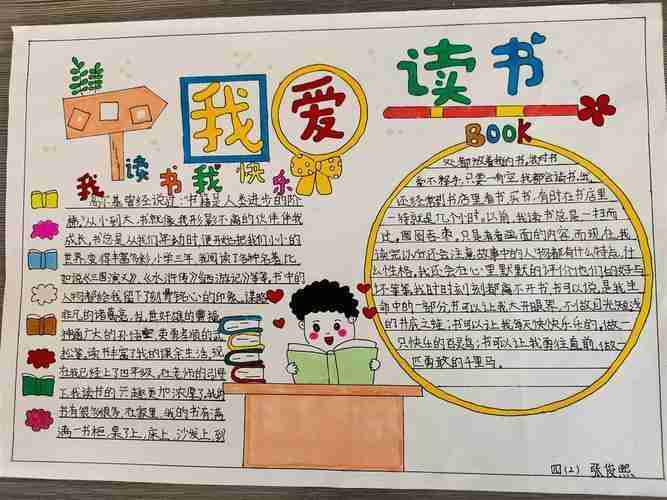 我爱
读书
BOOK
我读书我快乐
高尔基曾经说过:书籍是人类进步的阶
梯。从小到大,书就像我形影不离的伙伴伴我
成长,书总是从我们年幼时便开始把我们小小的
世界,变得丰富多彩,小学三年,我阅读了各种名著,比
如说《三国演义》、《水浒传》、《西游记》等等,书中的
人物都给我留下了刻骨铭心的印象,谋略
非凡的诸葛亮,乱世奸雄的曹操,
神通广大的孙悟空,英勇
松等,读书丰富了我的课余生活,现
在我已经上了四年级,在老师的引导
下我读书的兴趣更加浓厚了,我的
书有很多很多,在家里,我的书有满
满一书柜,桌了上,床上,沙发上,到
处都放着我的书,我对书
爱不释手,只要一有空,我都会读书,我
还经常到书店里看书、买书,有时在书店里
一待就是几个时,以前,我读书总是一扫而
过,囫囵吞枣,只是看看画面的内容,而现在,我
读完以后还会注意故事中的人物都有什么特点,什
么性格,我还会在心里默默的评价他们的好与
坏等等,我时时刻刻都离不开书,可以说,是我生
命中的一部分,书可以让我大开眼界,不做目光短浅
的书店之蛙;书可以让我每天快快乐乐的,做一
只快乐的百灵鸟;书可以让我勇往直前,做一
匹勇敢的千里马。
四(2) 张俊熙